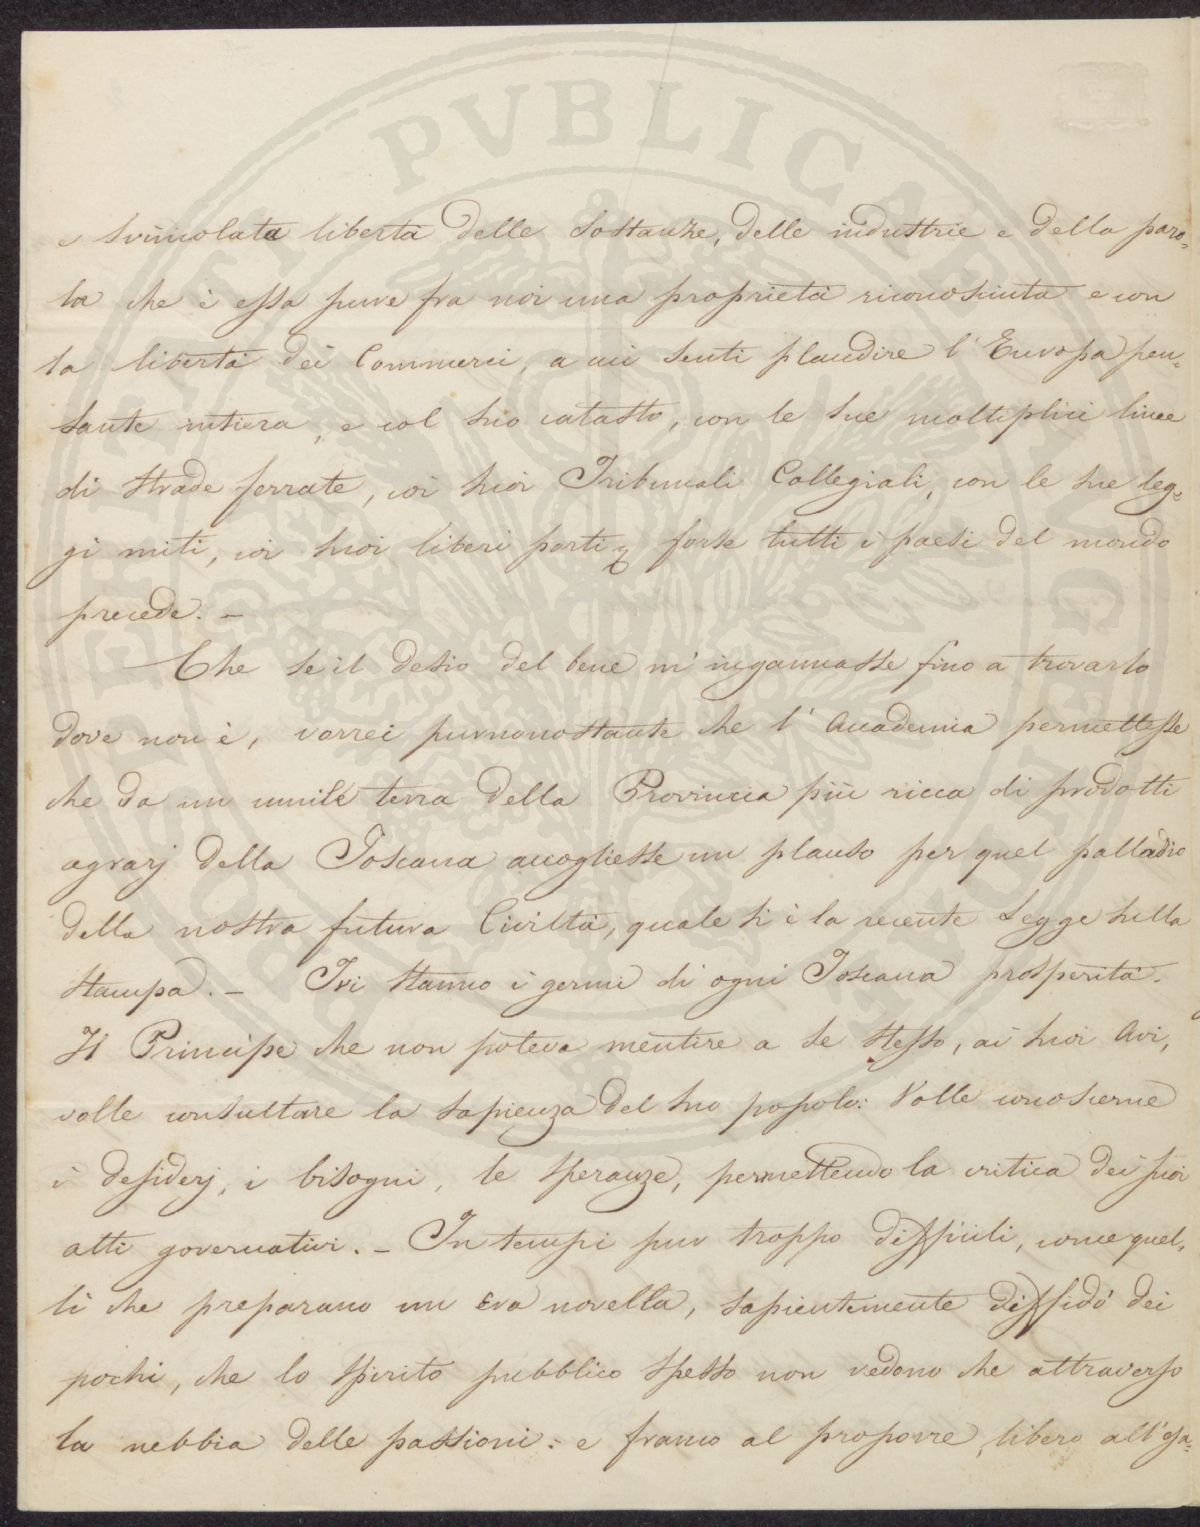 e svincolata libertà delle sostanze, delle industrie e della paro-
la che è essa pure fra noi una proprietà riconosciuta e con
la libertà dei Commerci, a cui senti plaudire l'Europa pen-
sante intiera, e col suo catasto, con le sue moltiplici linee
di strade ferrate, coi suoi Tribunali Collegiali, con le sue leg-
gi miti, coi suoi liberi porti forse tutti i paesi del mondo
precede. -
Che se il desio del bene m'ingannasse fino a trovarlo
dove non è, vorrei purnonostante che l'Accademia permettesse
che da un umile terra della Provincia più ricca di prodotti
agrarj della Toscana accogliesse un plauso per quel palladio
della nostra futura Civiltà, quale si è la recente Legge sulla
stampa. - Ivi stanno i germi di ogni Toscana prosperità.
Il Principe che non poteva mentire a se stesso, ai suoi Avi,
volle consultare la sapienza del suo popolo: Volle conoscerne
i desiderj, i bisogni, le speranze, permettendo la critica dei suoi
atti governativi. - In tempi pur troppo difficili, come quel-
li che preparano un Era novella, sapientemente diffidò dei
pochi, che lo spirito pubblico spesso non vedono che attraverso
la nebbia delle passioni: e franco al proporre, libero all'esa-
PVBLICAE